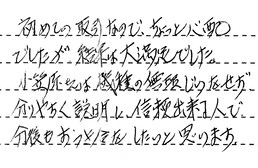 初めての取引なので、ちょっと心配
でしたが結果は大満足でした。
小笠原さんは機種の無知な私に
分りやすく説明し、信頼出来る人で
今後もおつき合をしたいと思います。